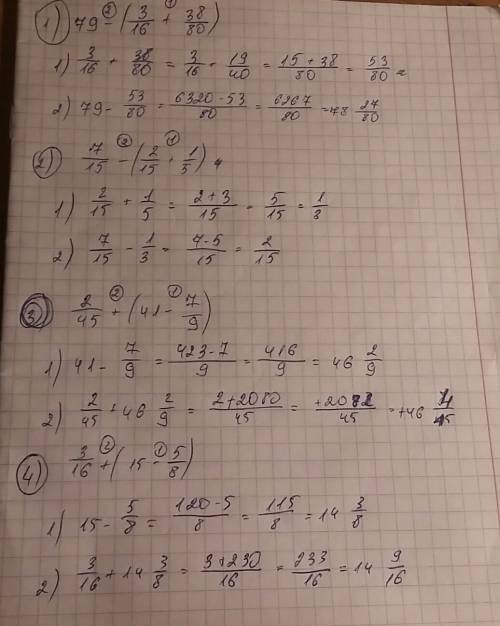 1) 79 -② (3/16 +① 38/80)
1) 3/16 + 38/80 = 3/16 + 19/40 = 15 + 38/80 = 53/80 =
2) 79 - 53/80 = 6320 - 53/80 = 6267/80 = 78 27/80
2) 7/15 -② (2/15 +① 1/5) =
1) 2/15 + 1/5 = 2 + 3/15 = 5/15 = 1/3
2) 7/15 - 1/3 = 7 - 5/15 = 2/15
3 2/45 +② (41 -① 7/9)
1) 41 - 7/9 = 423 - 7/9 = 416/9 = 46 2/9
2) 2/45 + 46 2/9 = 2 + 2080/45 = +2082/45 = +46
4) 3/16 +② (15 -① 5/8)
1) 15 - 5/8 = 120 - 5/8 = 115/8 = 14 3/8
2) 3/16 + 14 3/8 = 3 + 230/16 = 233/16 = 14 9/16